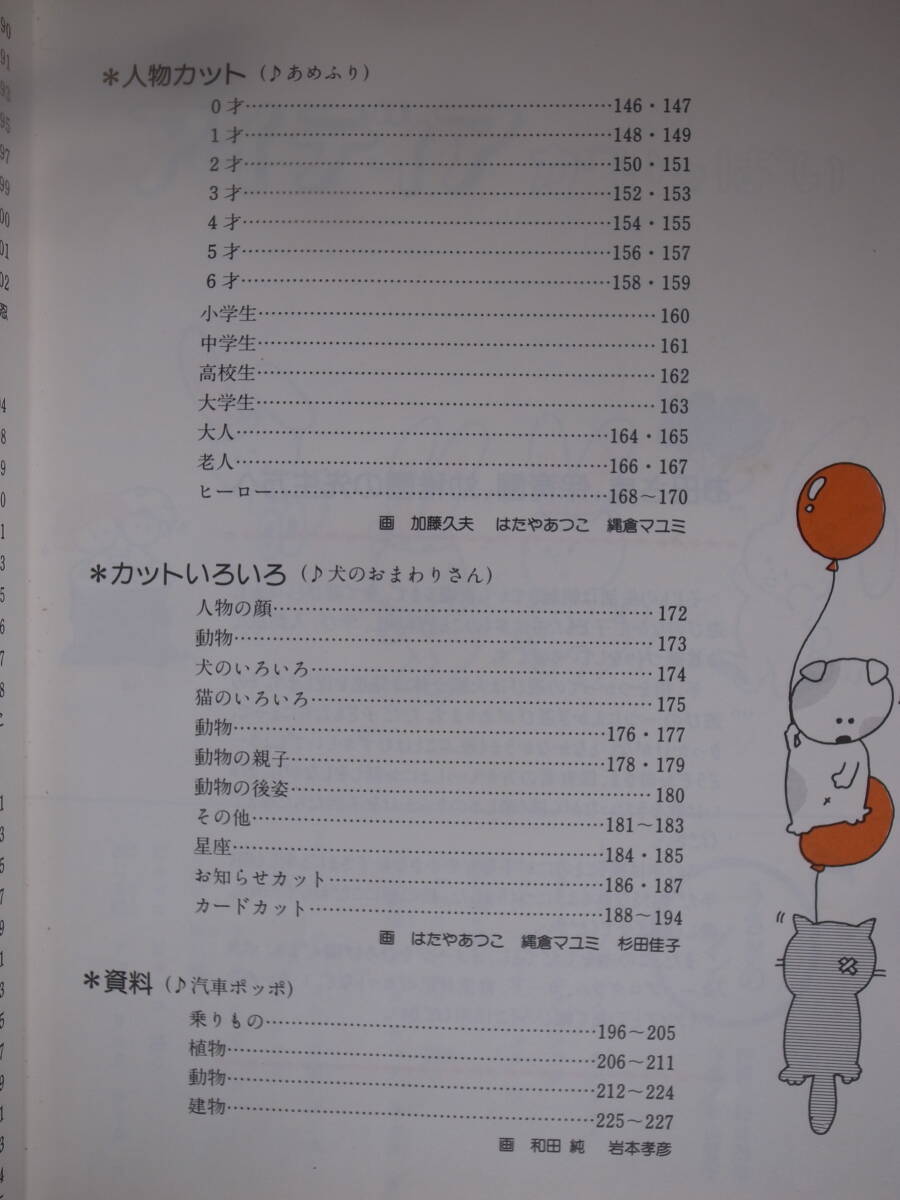 *人物カット（♪あめふり）
0才……146・147
1才……148・149
2才……150・151
3才……152・153
4才……154・155
5才……156・157
6才……158・159
小学生……160
中学生……161
高校生……162
大学生……163
大人……164・165
老人……166・167
ヒーロー……168〜170
画 加藤久夫 はたやあつこ 縄倉マユミ
*カットいろいろ（♪犬のおまわりさん）
人物の顔……172
動物……173
犬のいろいろ……174
猫のいろいろ……175
動物……176・177
動物の親子……178・179
動物の後姿……180
その他……181〜183
星座……184・185
お知らせカット……186・187
カードカット……188〜194
画 はたやあつこ 縄倉マユミ 杉田佳子
*資料（♪汽車ポッポ）
乗りもの……196〜205
植物……206〜211
動物……212〜224
建物……225〜227
画 和田 純 岩本孝彦